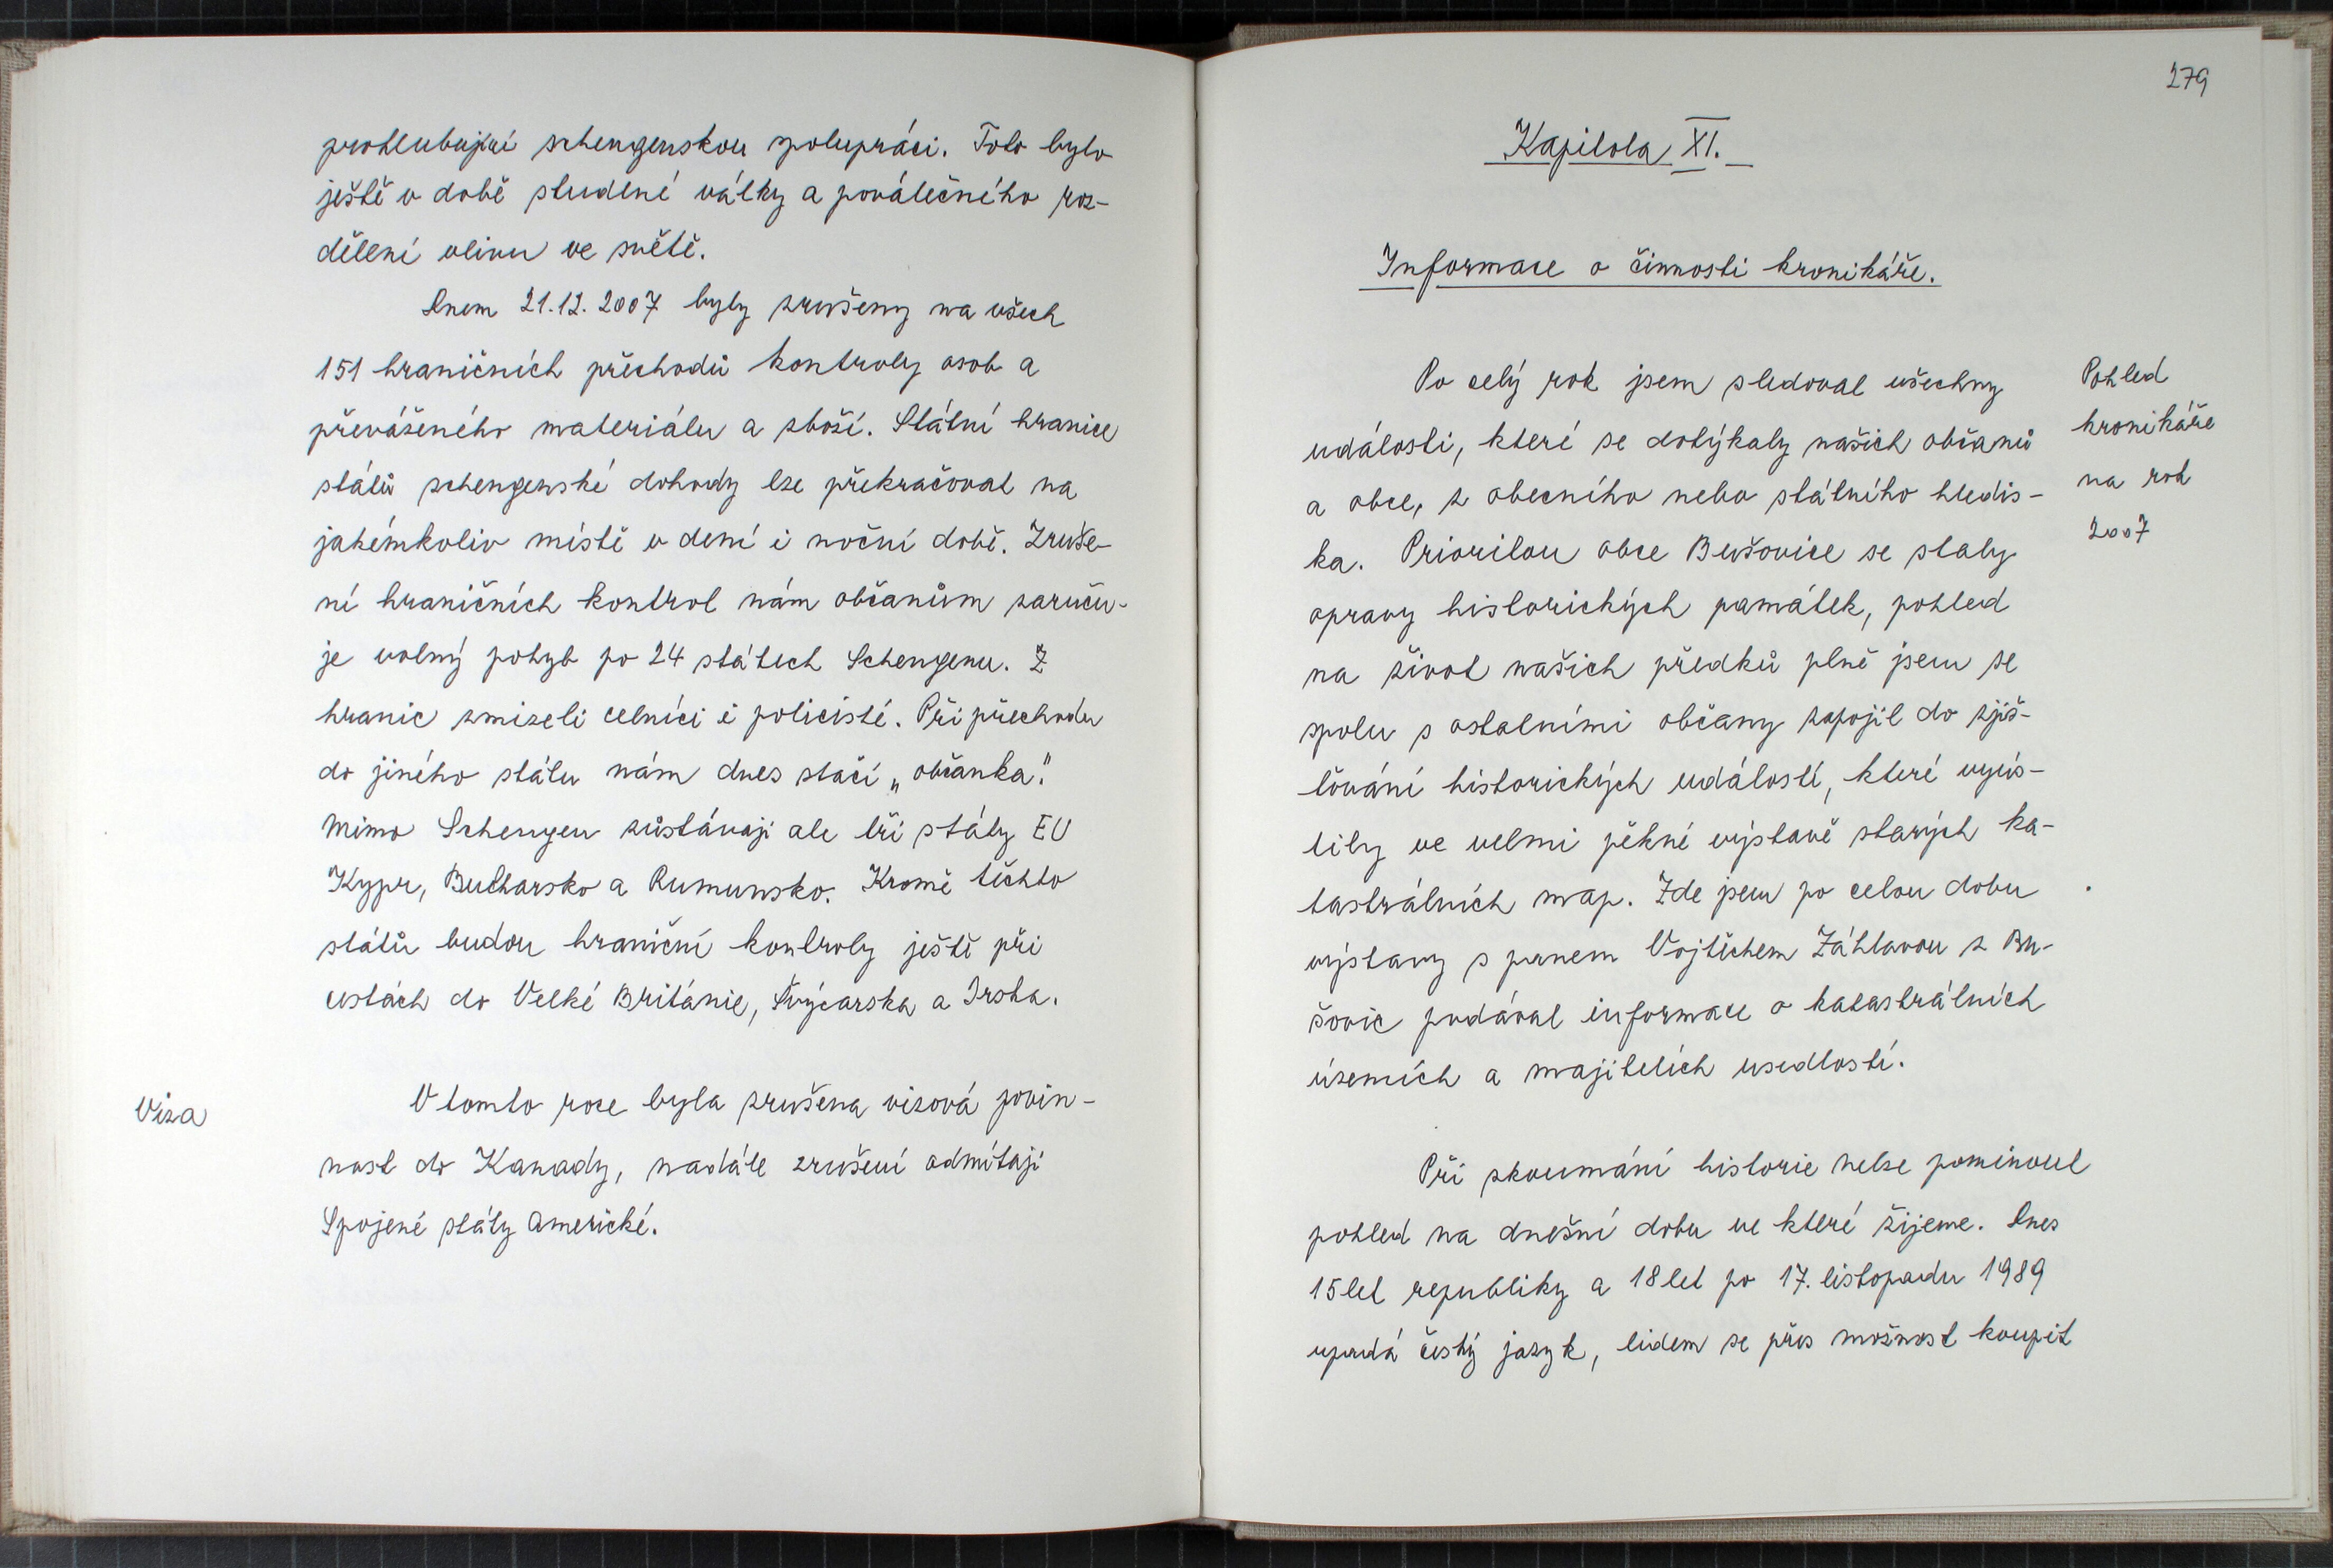 prohlubující schengenskou spolupráci. Toto bylo
ještě v době studené války a poválečného roz-
dělení vlivu ve světě.
Dnem 21.12.2007 byly zrušeny na všech
151 hraničních přechodů kontroly osob a
převáženého materiálu a zboží. Státní hranice
států schengenské dohody lze překračovat na
jakémkoliv místě v dení i noční době. Zruše-
ní hraničních kontrol nám občanům zaruču-
je volný pohyb po 24 státech Schengenu. Z
hranic zmizeli celníci i policisté. Při přechodu
do jiného státu nám dnes stačí „občanka".
Mimo Schengen zůstávaji ale tři státy EU
Kypr, Bulharsko a Rumunsko. Kromě těchto
států budou hraniční kontroly ještě při
cestách do Velké Británie, Švýcarska a Irska.
Víza
V tomto roce byla zrušena vizová povin-
nost do Kanady, nadále zrušení odmítaji
Spojené státy Americké.
279
Kapitola XI.
Informace o činnosti kronikáře.
Pohled
kronikáře
na rok
2007
Po celý rok jsem sledoval všechny
události, které se dotýkaly našich občanů
a obce, z obecního nebo státního hledis-
ka. Prioritou obce Bušovice se staly
opravy historických památek, pohled
na život našich předků plně jsem se
spolu s ostatními občany zapojil do zjiš-
ťování historických událostí, které vyús-
tily ve velmi pěkné výstavě starých ka-
tastrálních map. Zde jsem po celou dobu
výstavy s panem Vojtěchem Záhlavou z Bu-
šovic podával informace o katastrálních
územích a majitelích usedlostí.
Při zkoumání historie nelze pominout
pohled na dnešní dobu ve které žijeme. Dnes
15 let republiky a 18 let po 17. listopadu 1989
upadá český jazyk, lidem se přes možnost koupit